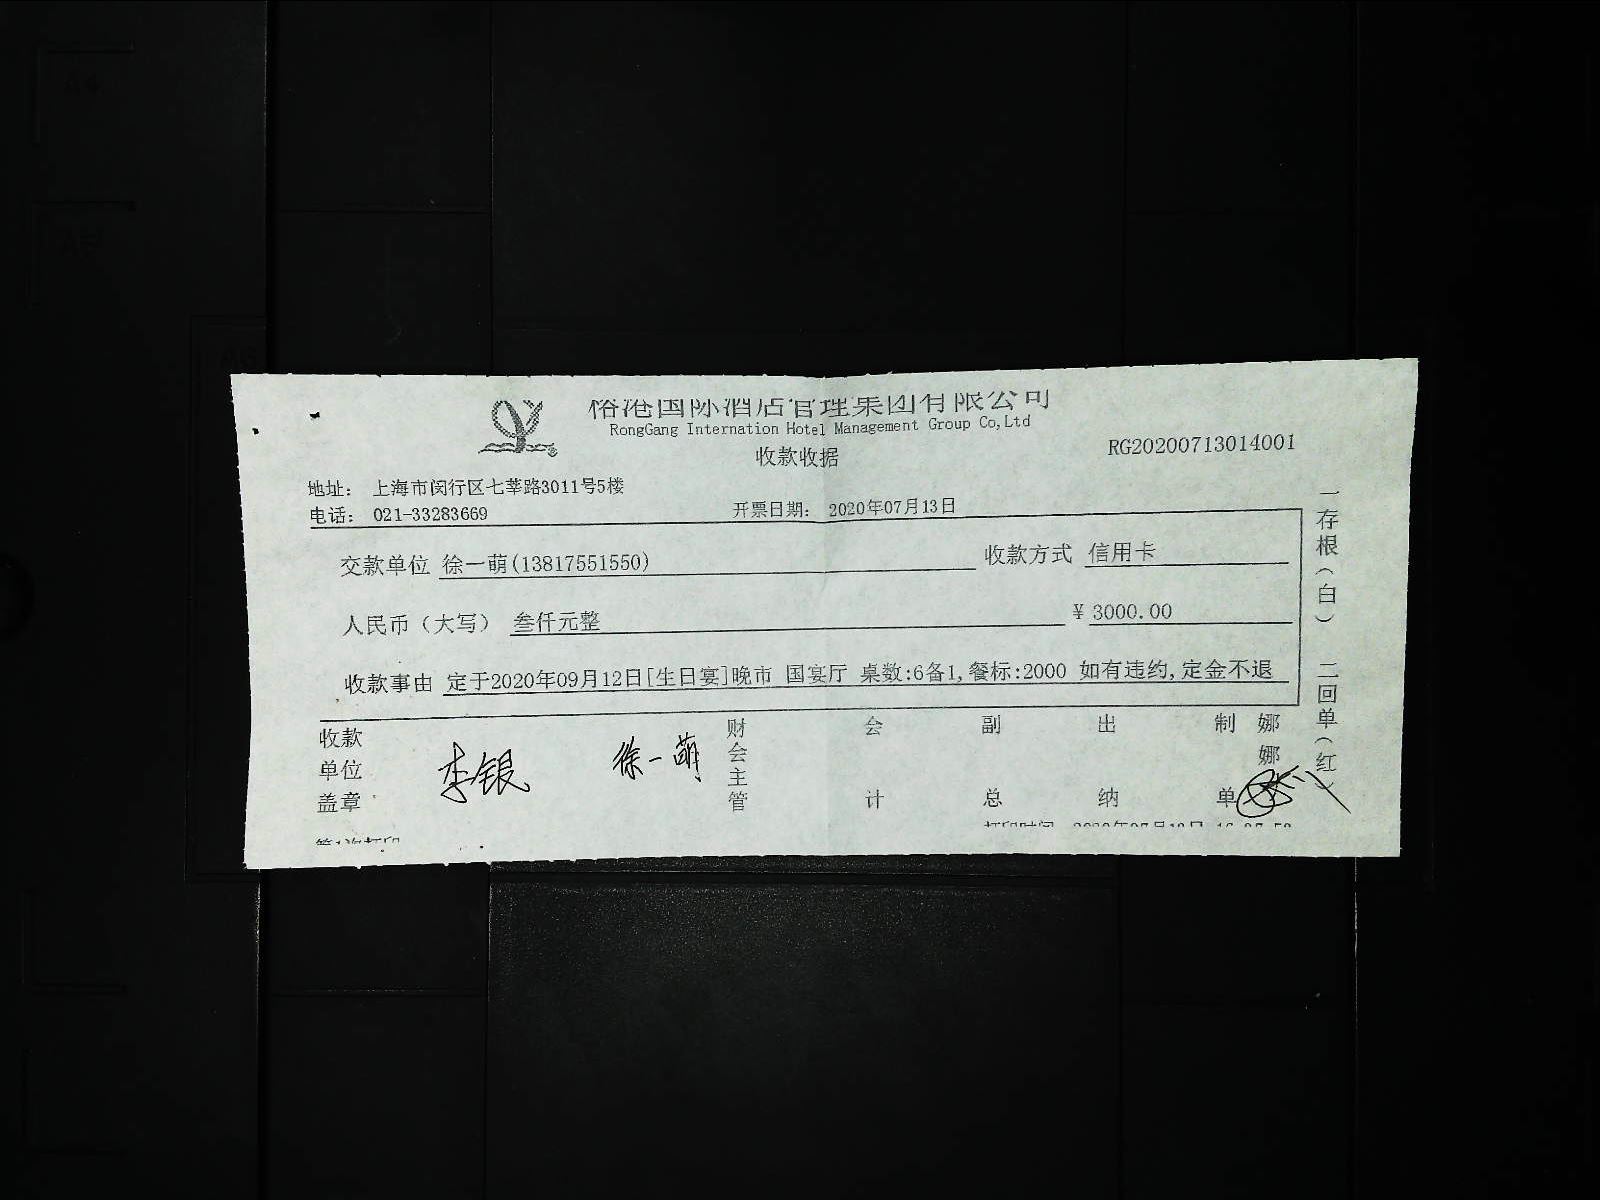 裕港国际酒店管理集团有限公司
RongGang Internation Hotel Management Group Co,Ltd
收款收据
RG20200713014001
地址： 上海市闵行区七莘路3011号5楼
电话： 021-33283669
开票日期： 2020年07月13日
交款单位 徐一萌(13817551550)
收款方式 信用卡
人民币（大写） 叁仟元整
￥ 3000.00
收款事由 定于2020年09月12日[生日宴]晚市 国宴厅 桌数:6备1,餐标:2000 如有违约,定金不退
收款单位盖章
李银
徐一萌
财会主管
会计
副总
出纳
制单
娜娜
一存根（白） 二回单（红）
第1次打印
打印时间